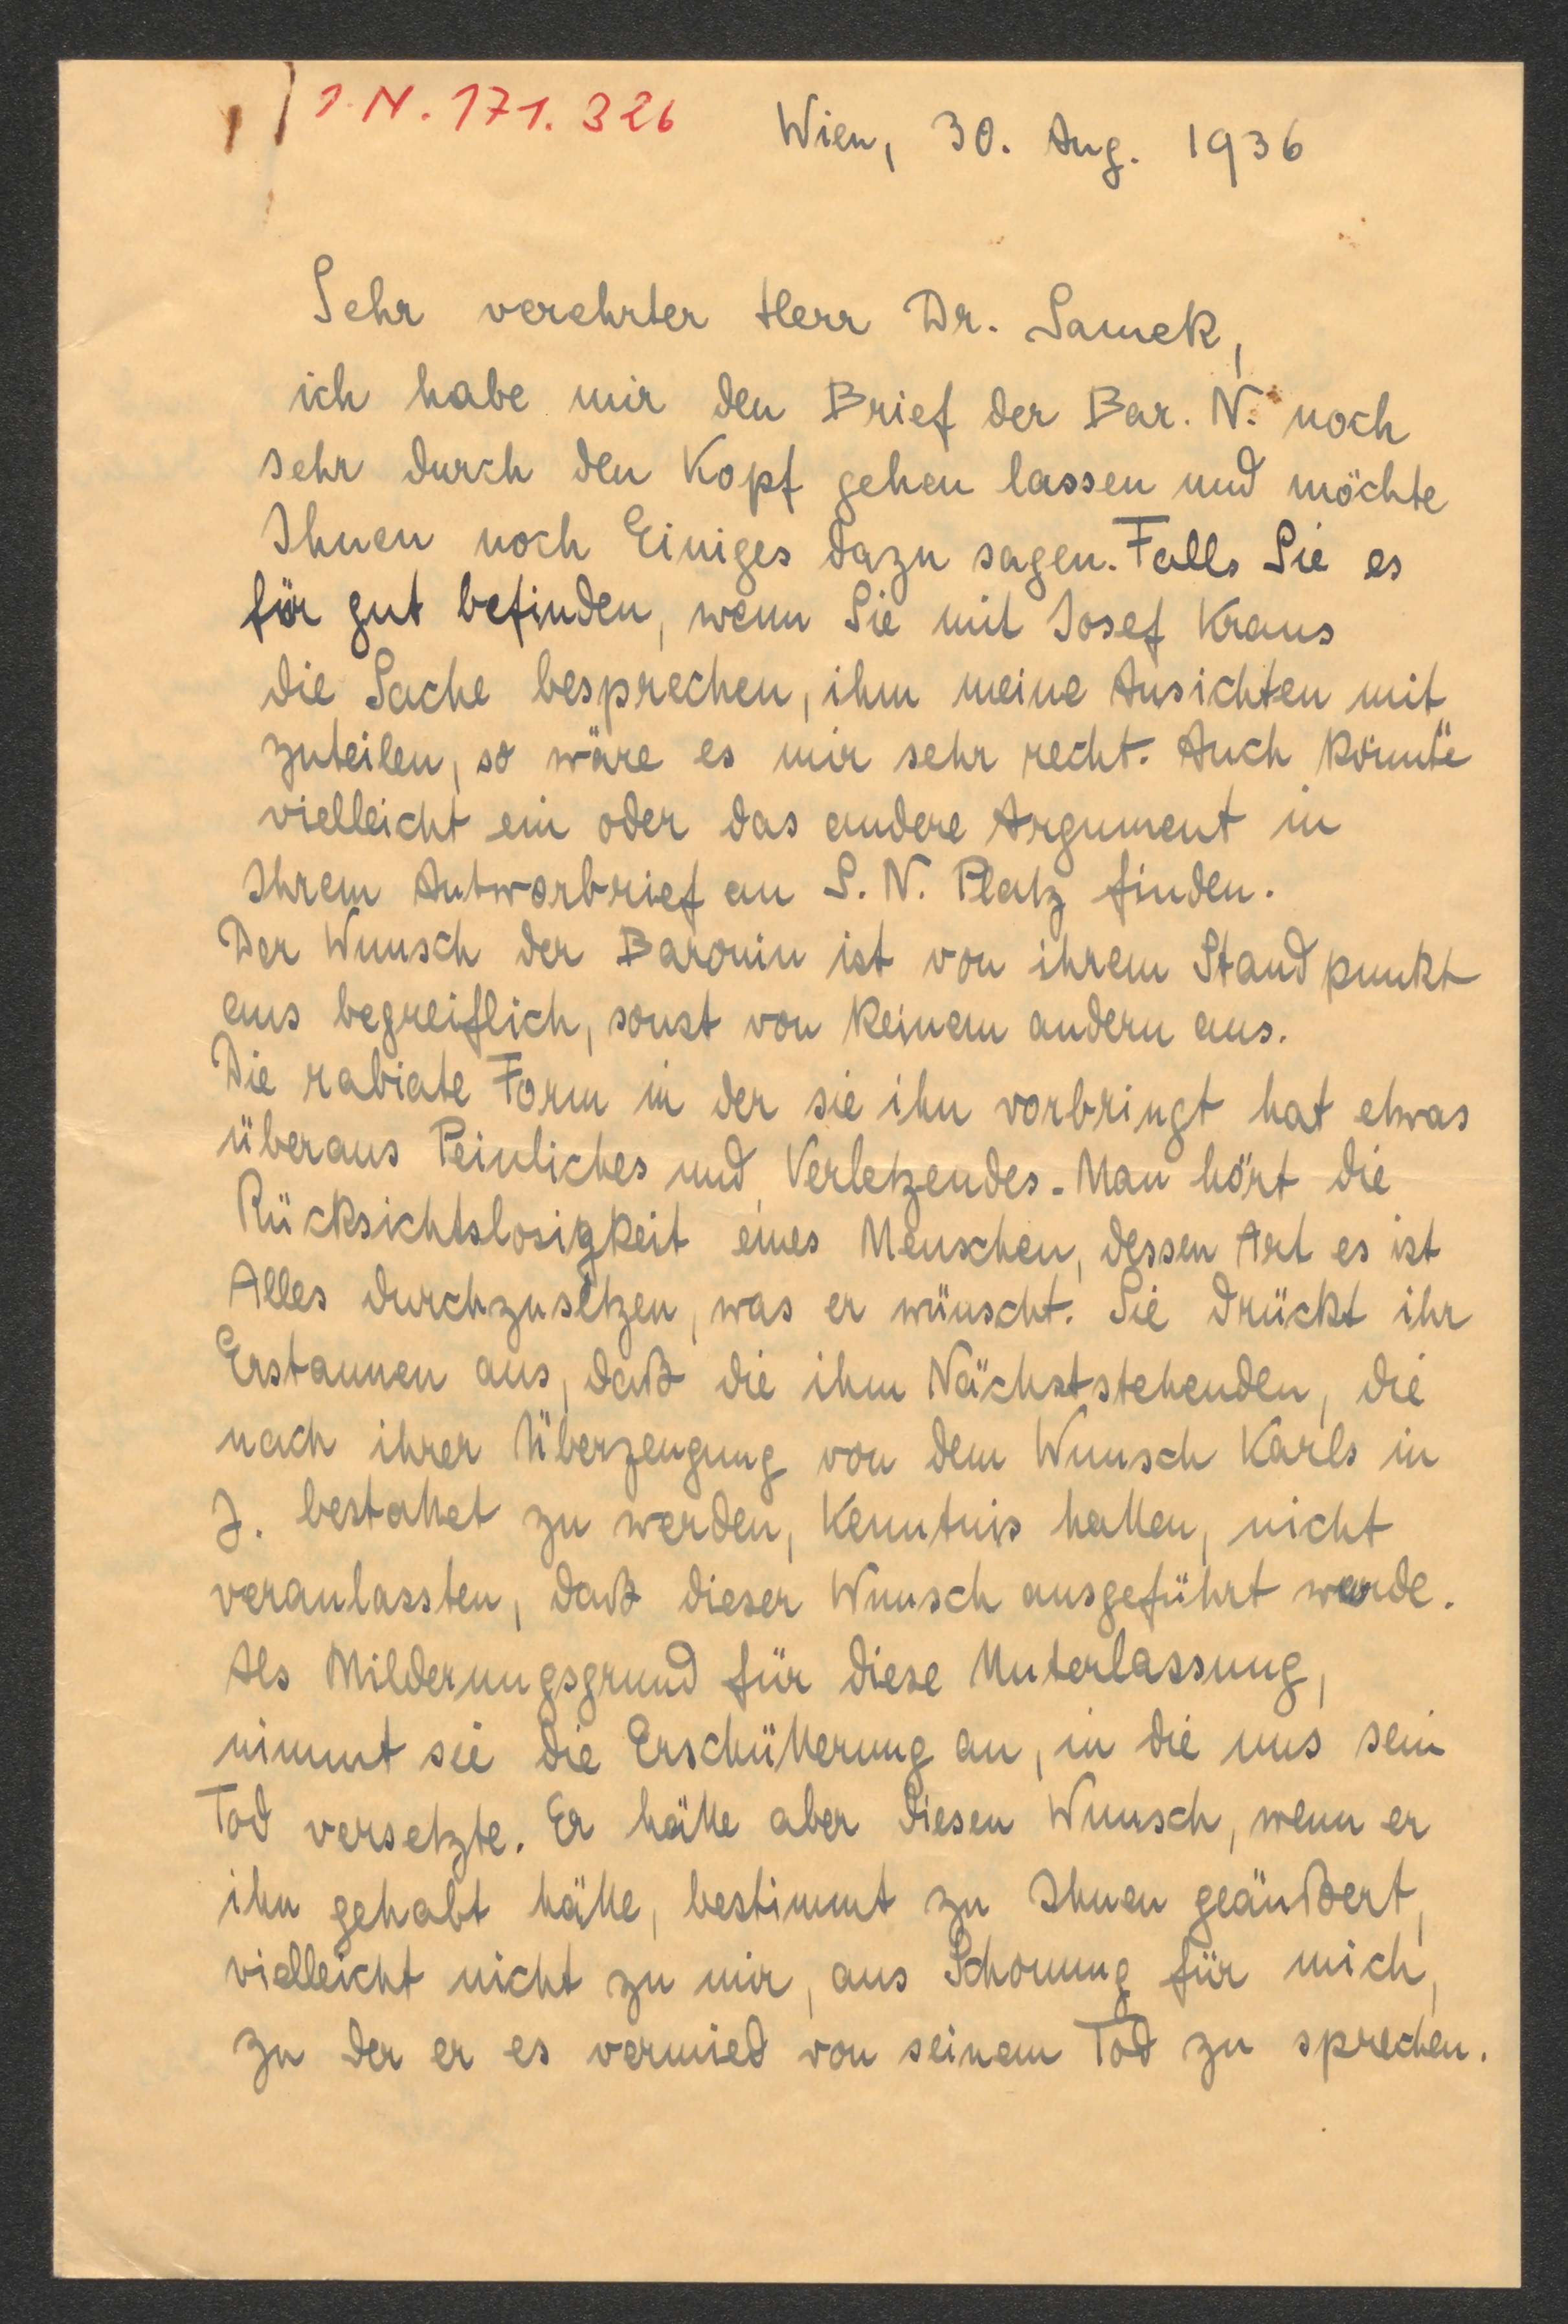 I. N. 171.326
Wien, 30. Aug. 1936
Sehr verehrter Herr Dr. Samek,
ich habe mir den Brief der Bar. N. noch
sehr durch den Kopf gehen lassen und möchte
Ihnen noch Einiges dazu sagen. Falls Sie es
für gut befinden, wenn Sie mit Josef Kraus
die Sache besprechen, ihm meine Ansichten mit
zuteilen, so wäre es mir sehr recht. Auch könnte
vielleicht ein oder das andere Argument in
Ihrem Antworbrief an S. N. Platz finden.
Der Wunsch der Baronin ist von ihrem Standpunkt
aus begreiflich, sonst von keinem andern aus.
Die rabiate Form in der sie ihn vorbringt hat etwas
überaus Peinliches und Verletzendes. Man hört die
Rücksichtslosigkeit eines Menschen, dessen Art es ist
Alles durchzusetzen, was er wünscht. Sie drückt ihr
Erstaunen aus, daß die ihm Nächststehenden, die
nach ihrer Überzeugung von dem Wunsch Karls in
J. bestattet zu werden, Kenntnis hatten, nicht
veranlassten, daß dieser Wunsch ausgeführt werde.
Als Milderungsgrund für diese Unterlassung,
nimmt sie die Erschütterung an, in die uns sein
Tod versetzte. Er hätte aber diesen Wunsch, wenn er
ihn gehabt hätte, bestimmt zu Ihnen geäußert,
vielleicht nicht zu mir, aus Schonung für mich,
zu der er es vermied von seinem Tod zu sprechen.